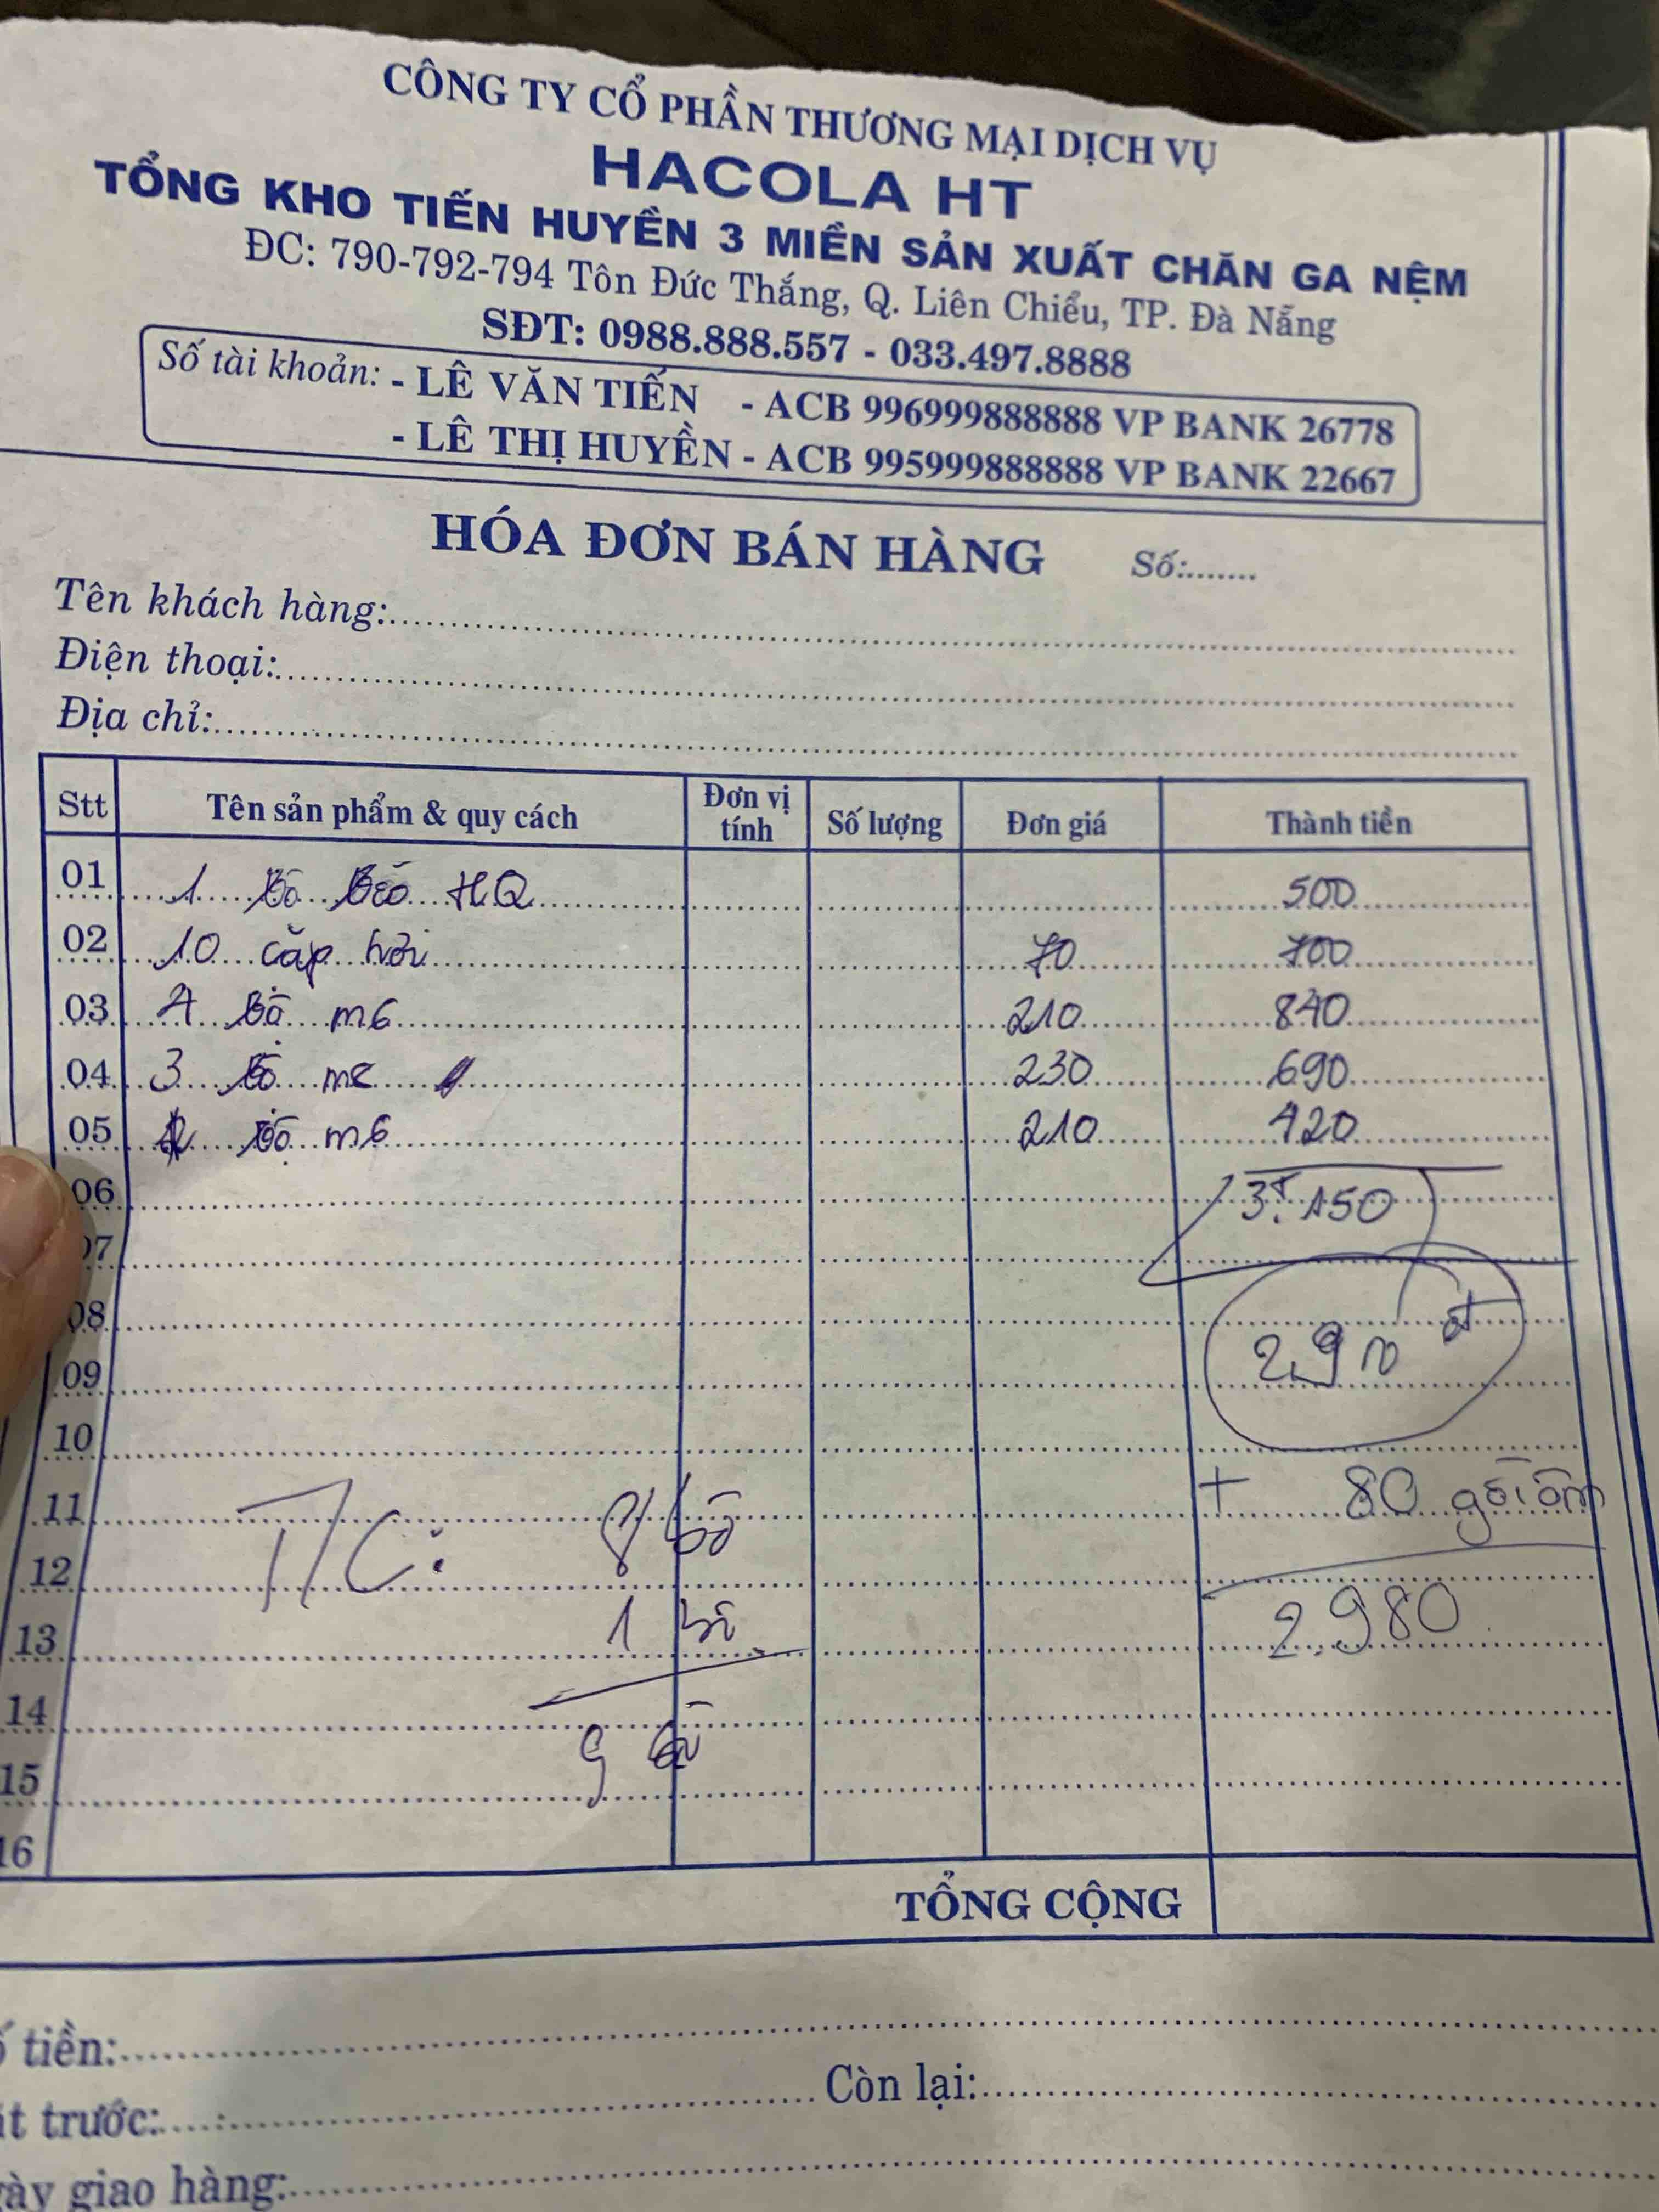 CÔNG TY CỔ PHẦN THƯƠNG MẠI DỊCH VỤ
HACOLA HT
TỔNG KHO TIẾN HUYỀN 3 MIỀN SẢN XUẤT CHĂN GA NỆM
ĐC: 790-792-794 Tôn Đức Thắng, Q. Liên Chiểu, TP. Đà Nẵng
SĐT: 0988.888.557 - 033.497.8888
Số tài khoản: - LÊ VĂN TIẾN - ACB 996999888888 VP BANK 26778
- LÊ THỊ HUYỀN - ACB 995999888888 VP BANK 22667
HÓA ĐƠN BÁN HÀNG Số:.......
Tên khách hàng:
Điện thoại:
Địa chỉ:
Stt Tên sản phẩm & quy cách Đơn vị tính Số lượng Đơn giá Thành tiền
01 1 HQ 500
02 10 cặp 70 700
03 4 bộ m6 210 840
04 3 bộ 230 690
05 2 bộ m6 210 420
06 3T.150
07
08
09 2.9
10
11 T/C: 8 bộ + 80 gối ôm
12
13 1 2.980
14
15 9
16
TỔNG CỘNG
tiền:
trước:
Còn lại:
giao hàng: